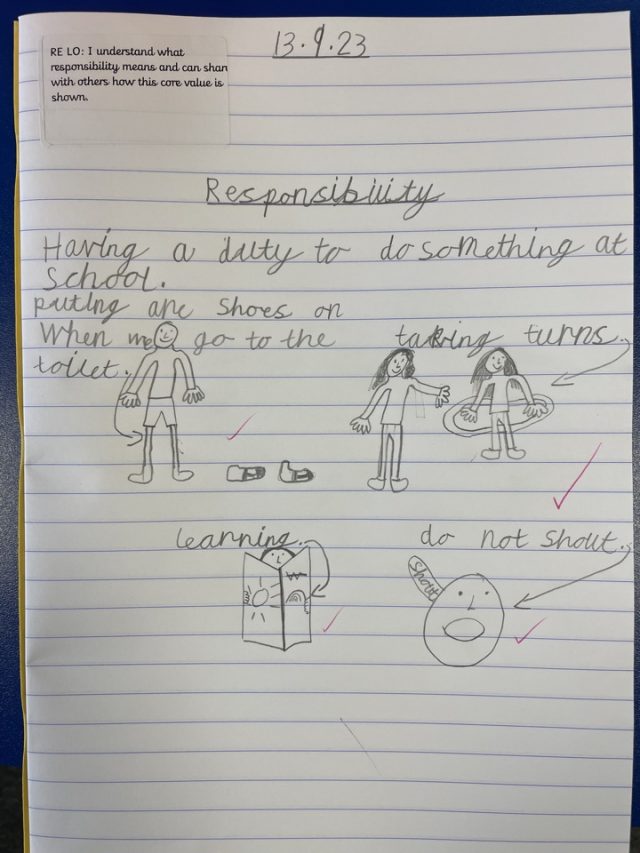 RE LO: I understand what
responsibility means and can shar
with others how this core value is
shown.
13.9.23
Responsibility
Having a duty to do something at
school.
puting are shoes on
When we go to the
toilet.
taking turns.
learning.
do not shout.
shout